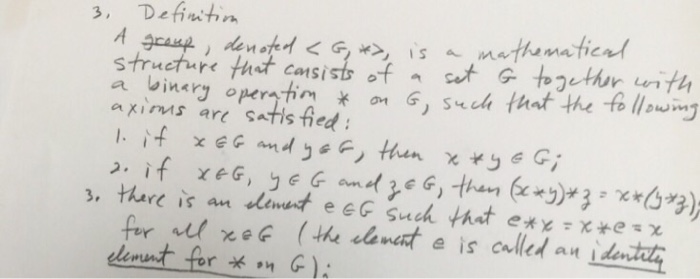 3. Definition
A group, denoted < G, *>, is a mathematical
structure that consists of a set G together with
a binary operation * on G, such that the following
axioms are satisfied:
1. if x ∈ G and y ∈ G, then x * y ∈ G;
2. if x ∈ G, y ∈ G and z ∈ G, then (x*y)*z = x*(y*z);
3. there is an element e ∈ G such that e*x = x*e = x
for all x ∈ G (the element e is called an identity
element for * on G);